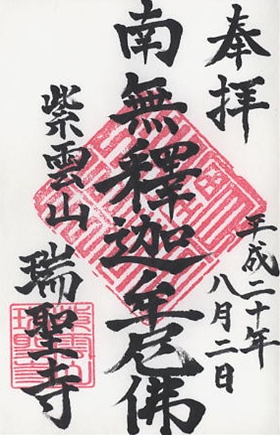 奉拝
平成二十年
八月二日
南無釋迦牟尼佛
紫雲山
瑞聖寺